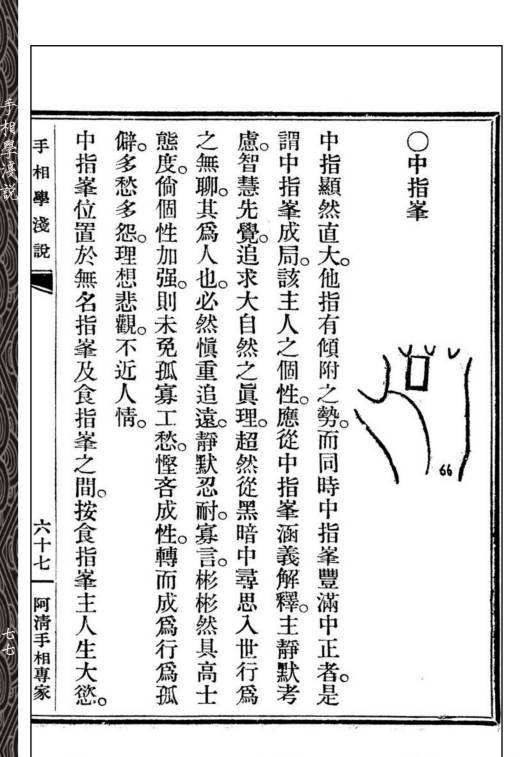 〇中指峯
66
中指顯然直大。他指有傾附之勢。而同時中指峯豐滿中正者。是
謂中指峯成局。該主人之個性。應從中指峯涵義解釋。主靜默考
慮。智慧先覺。追求大自然之眞理。超然從黑暗中尋思入世行爲
之無聊。其爲人也。必然愼重追遠。靜默忍耐。寡言。彬彬然具高士
態度。倘個性加强。則未免孤寡工愁。慳吝成性。轉而成爲行爲孤
僻。多愁多怨。理想悲觀。不近人情。
中指峯位置於無名指峯及食指峯之間。按食指峯主人生大慾。
手相學淺說
六十七
阿清手相專家
手相學淺説
七七